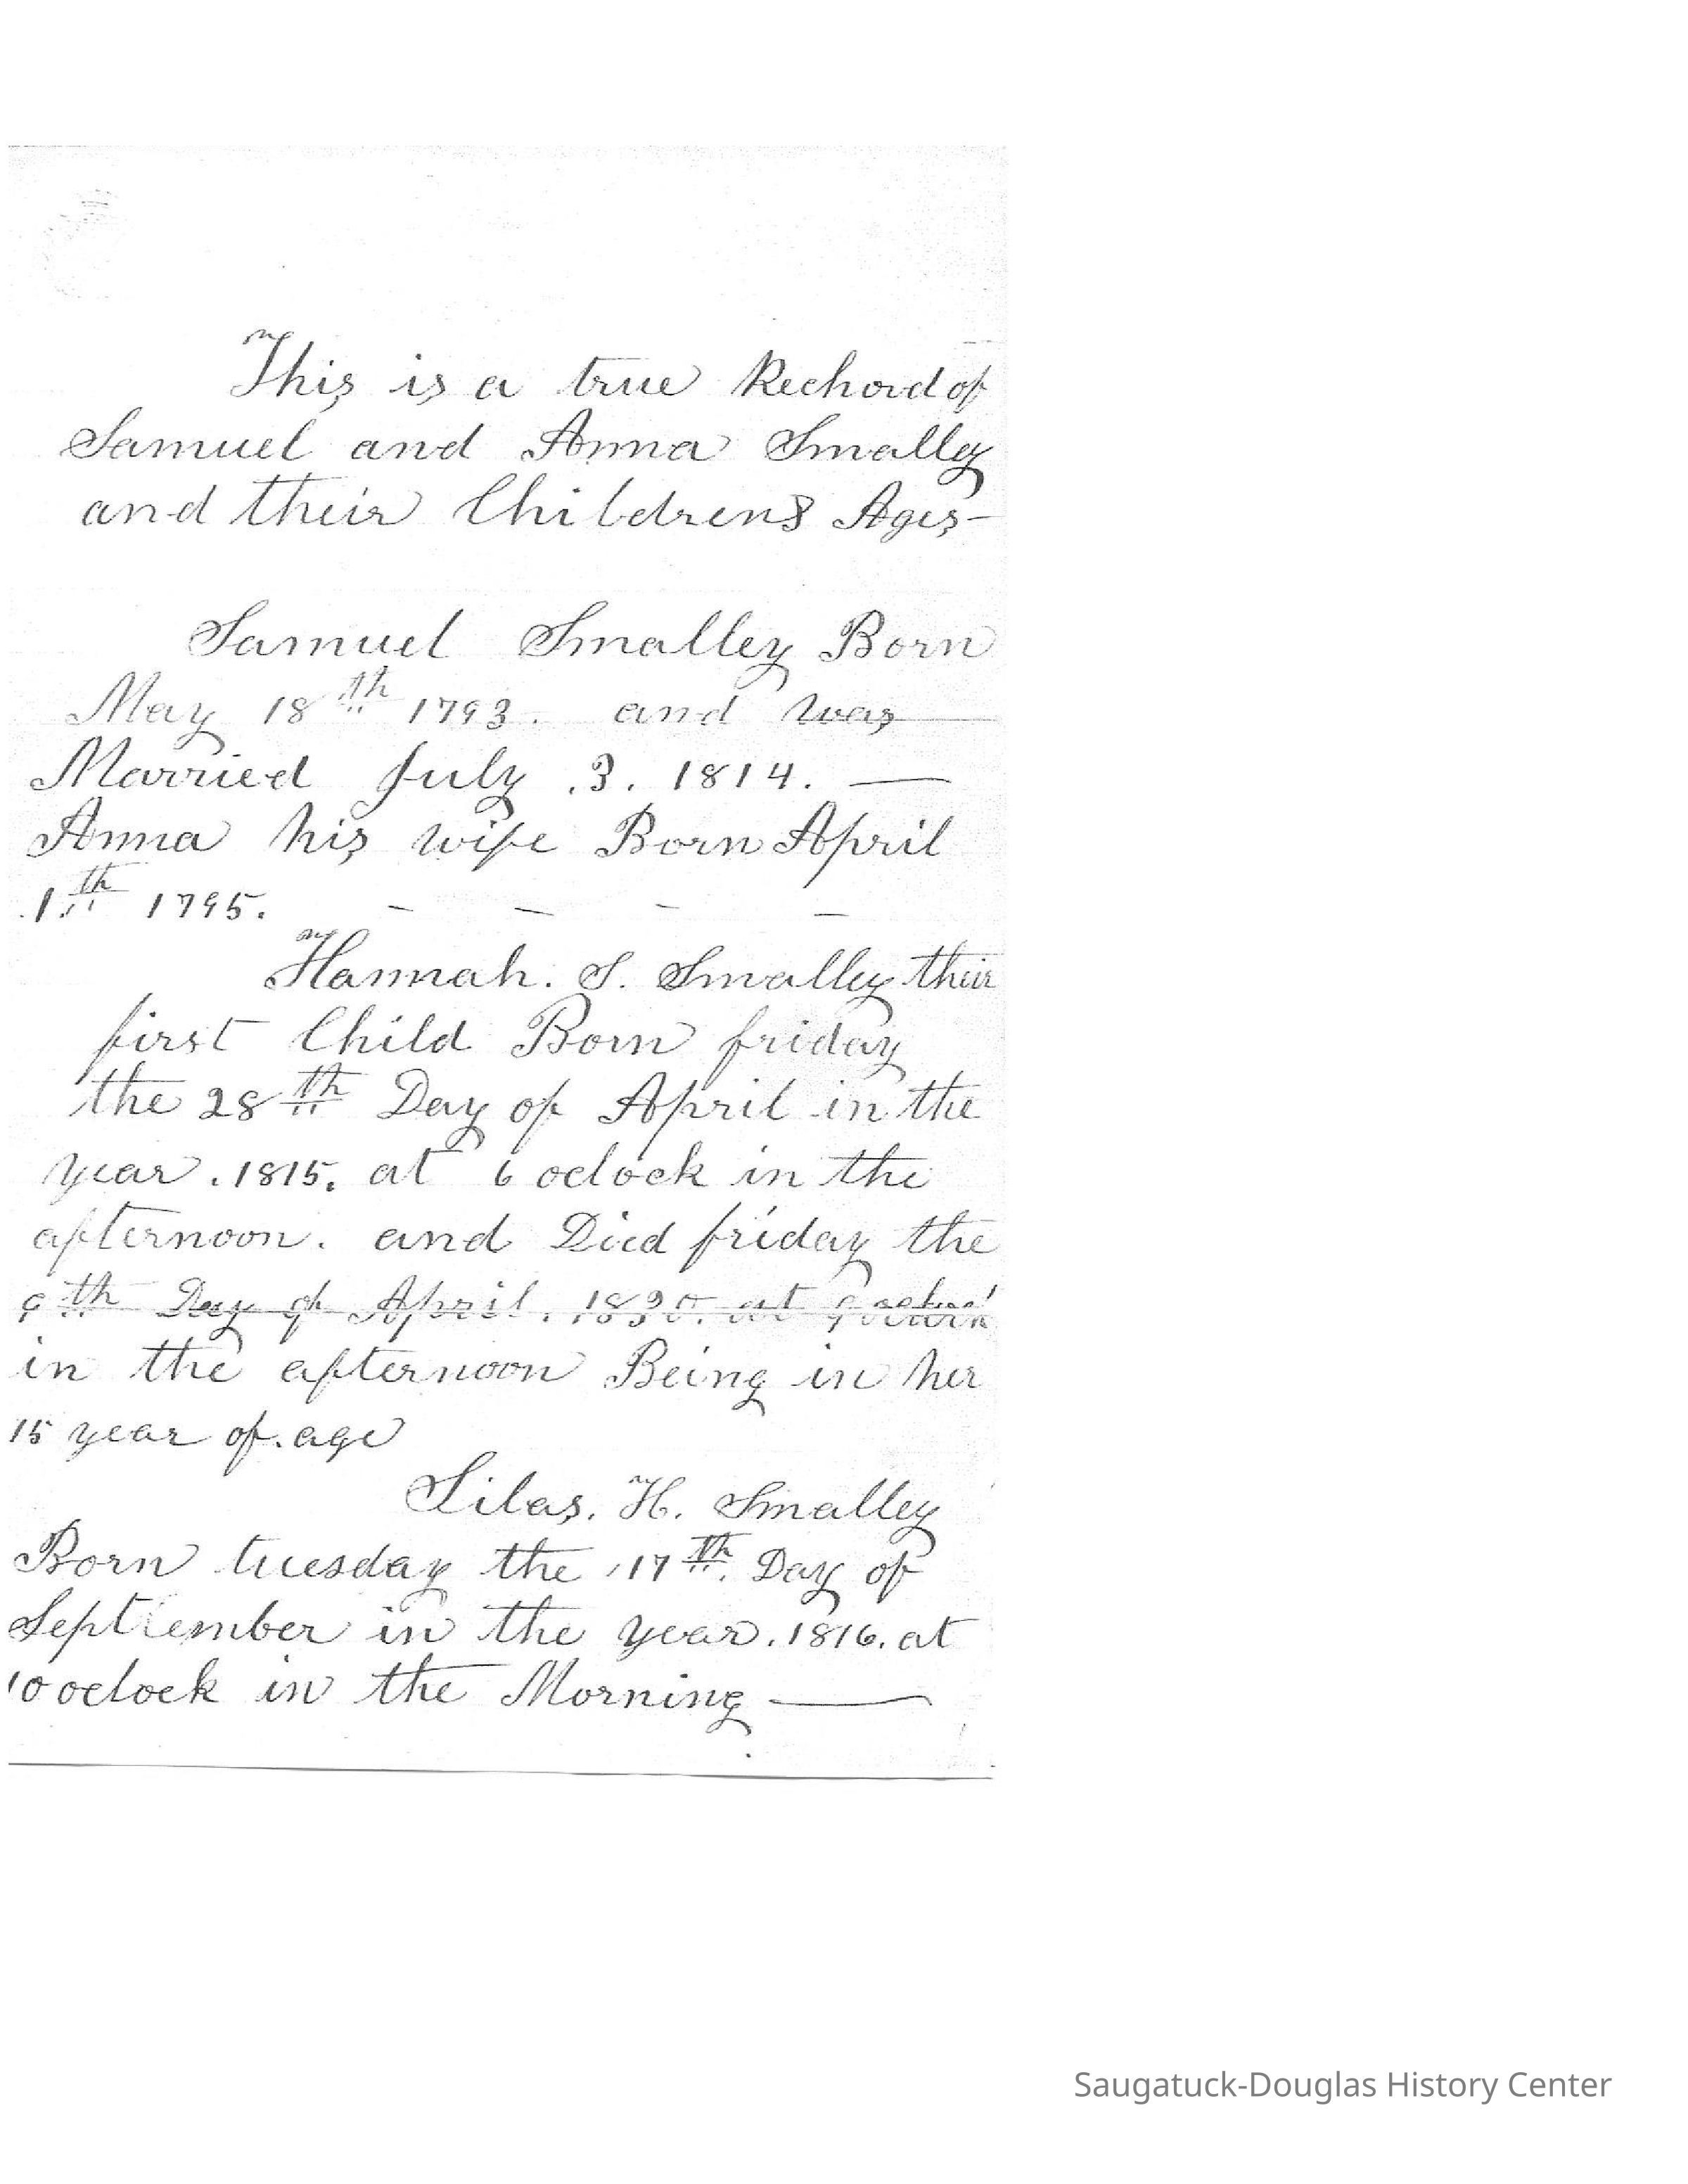 This is a true Rechord of
Samuel and Anna Smalley
and their Childrens Ages-
Samuel Smalley Born
May 18th 1793. and was
Married July .3. 1814. —
Anna his wife Born April
.1th 1795. - - - -
Hannah. S. Smalley their
first Child Born friday
the 28th Day of April in the
year .1815. at 6 oclock in the
afternoon. and Died friday the
9th Day of April. .1830. at 9 oclock
in the afternoon Being in her
15 year of. age
Silas. H. Smalley
Born tuesday the 17th. Day of
September in the year. 1816. at
10 oclock in the Morning —
Saugatuck-Douglas History Center